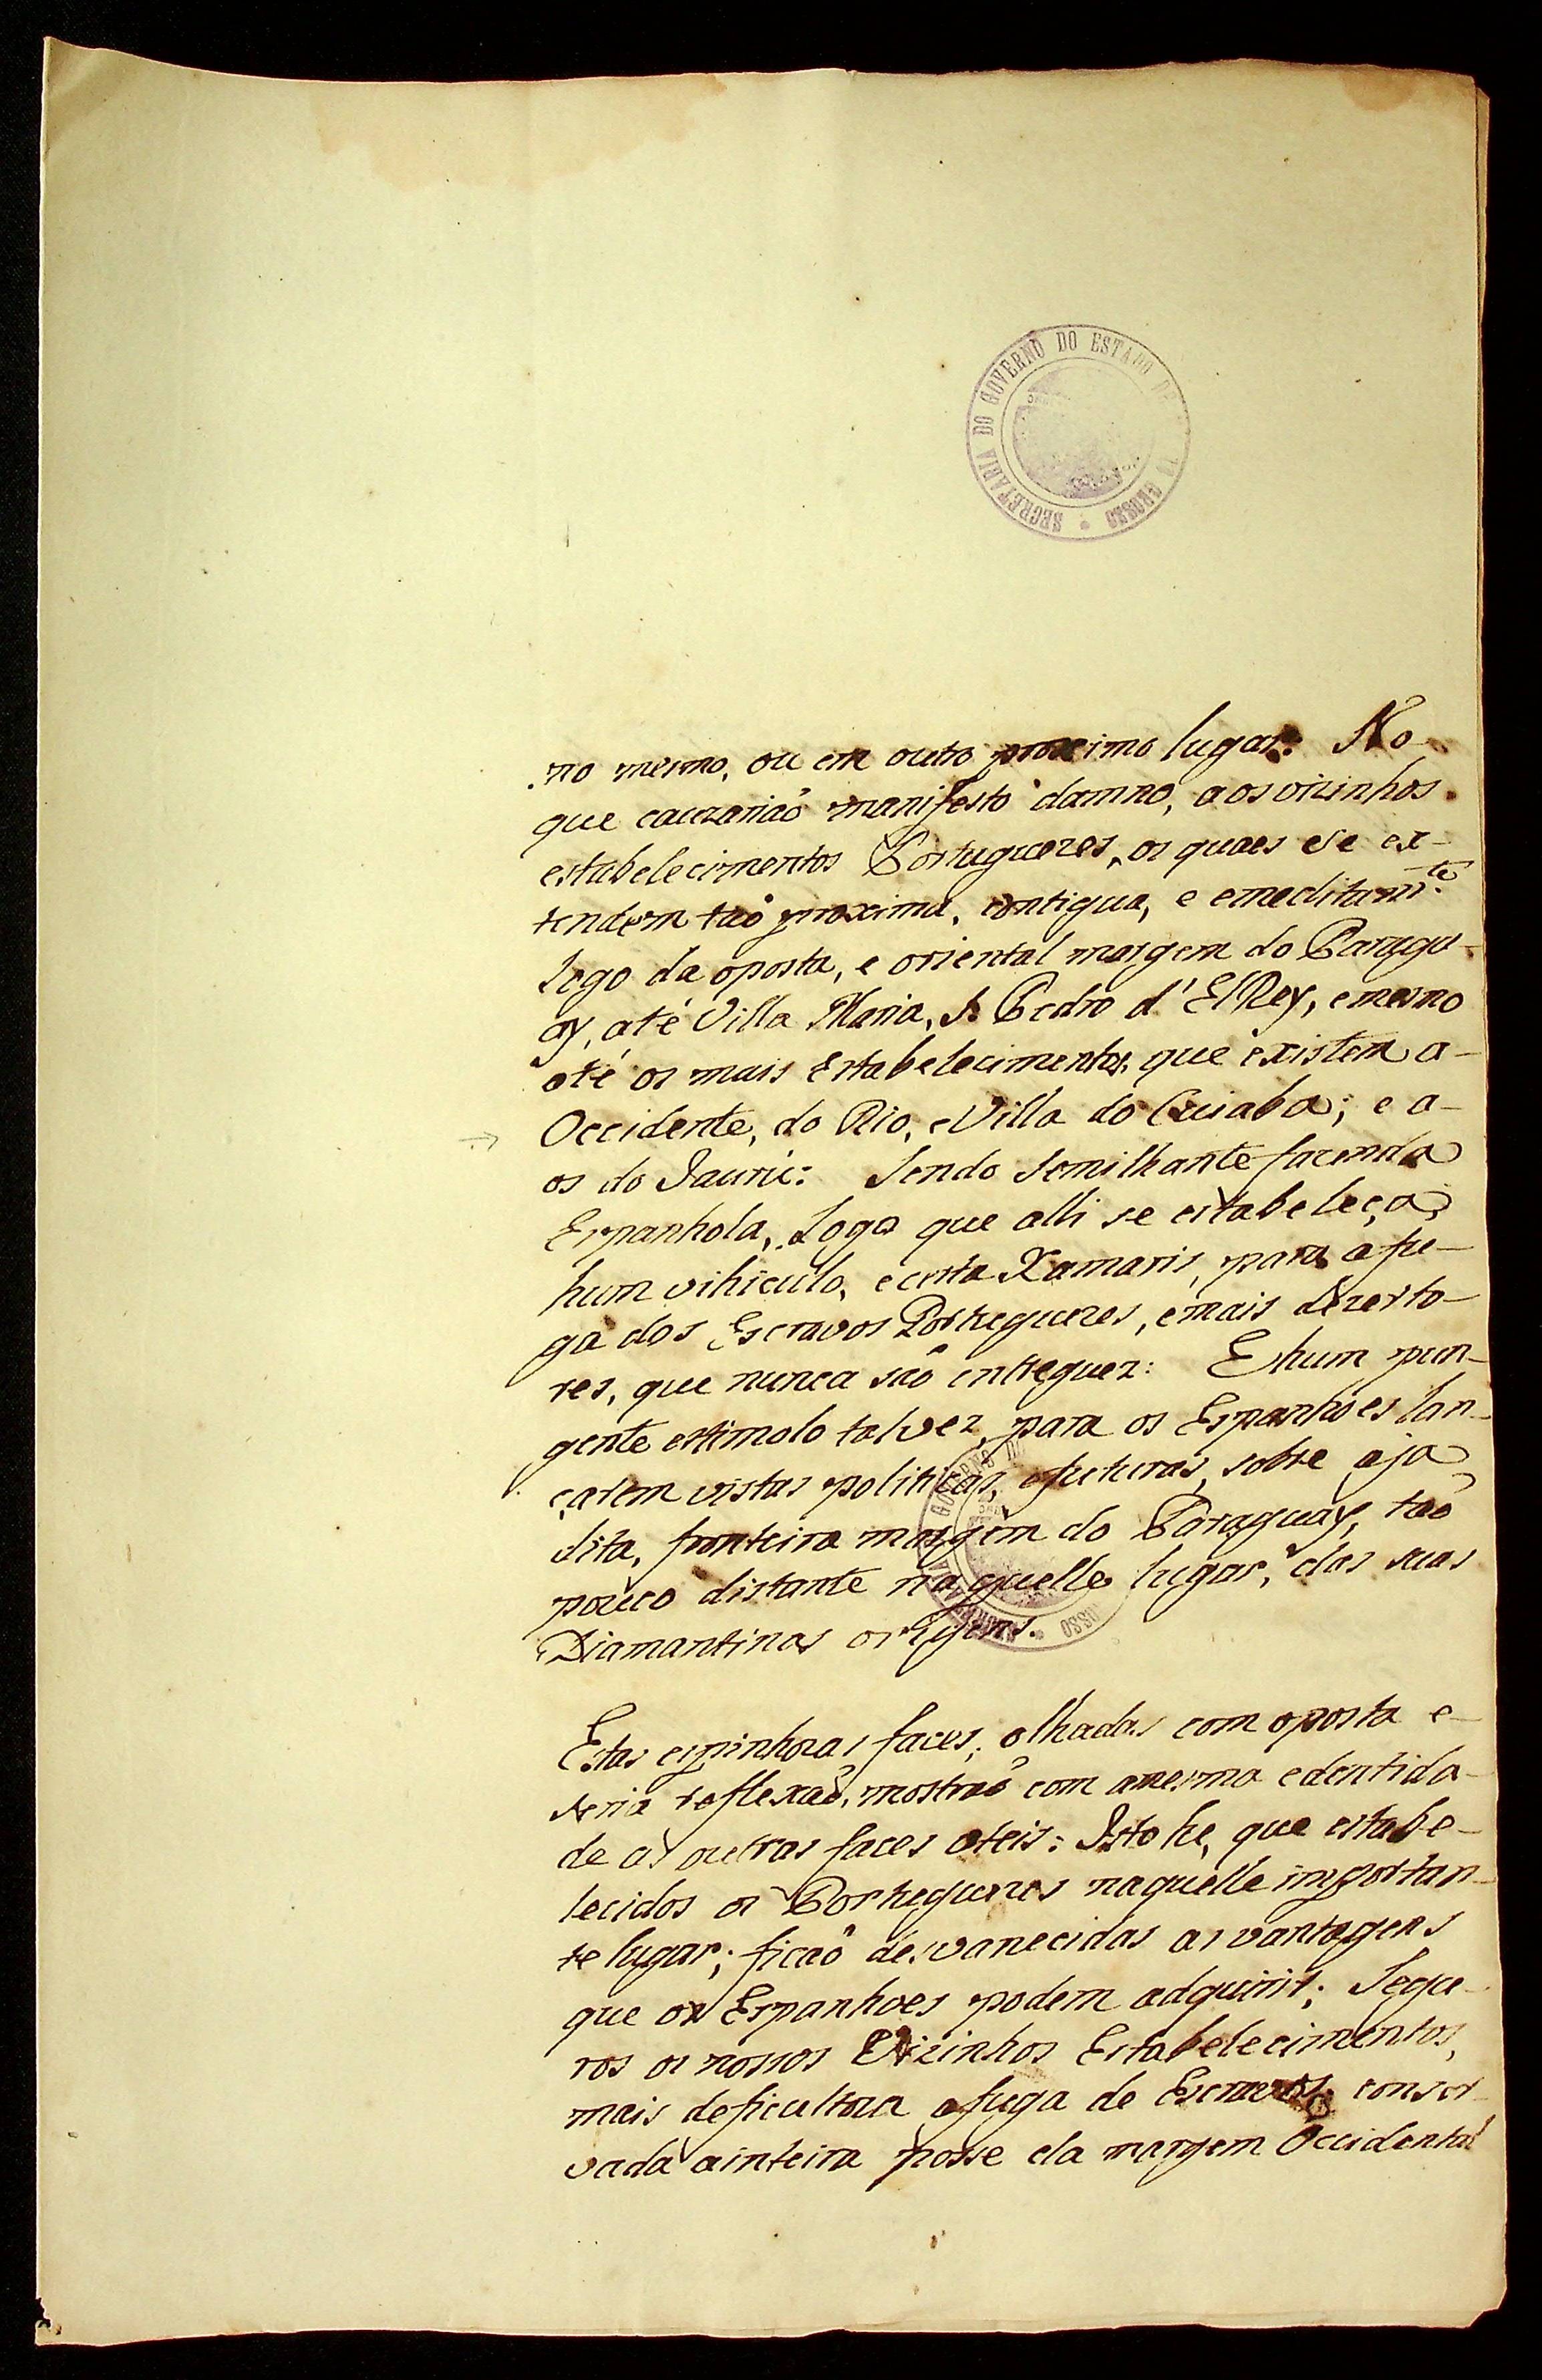 SECRETARIA DO GOVERNO DO ESTADO DE GROSSO
no mesmo, ou em outro proximo lugar: No
que cauzarião manifesto damno, aos vizinhos
estabelecimentos Portuguezes, os quaes se ex-
tendem tão proxima, contigua, e emeditam.te
logo da oposta, e oriental margem do Paragu-
ay, até Villa Maria, S. Pedro d'ElRey, emesmo
até os mais Estabelecimentos, que existem a-
Occidente, do Rio, eVilla do Cuiaba; e a-
os do Jaurú: Sendo Semilhante fazenda
Espanhola, Logo que alli se estabeleça,
hum vihiculo, ecerta Xamaris, para afu-
ga dos Escravos Portuguezes, emais dezerto-
res, que nunca são entreguez: Ehum pun-
gente estimolo talvez, para os Espanhoes lan-
çarem vistas politicas, efuturas, sobre aja
dita, fronteira margem do Paraguay, tão
pouco distante naquelle lugar, das suas
Diamantinas origens.
Estas espinhozas faces, olhadas com oposta e-
seria reflexão, mostrão com amesma edentida-
de as outras faces oteis: Isto he, que estabe-
lecidos os Portuguezes naquelle importan-
te lugar; ficão desvanecidas as vantagens
que os Espanhoes podem adquirir; Segu-
ros os nossos Vizinhos Estabelecimentos,
mais deficultoza afuga de Escravos; conser-
vada ainteira posse da margem Occidental
GOVERNO DO OSSO